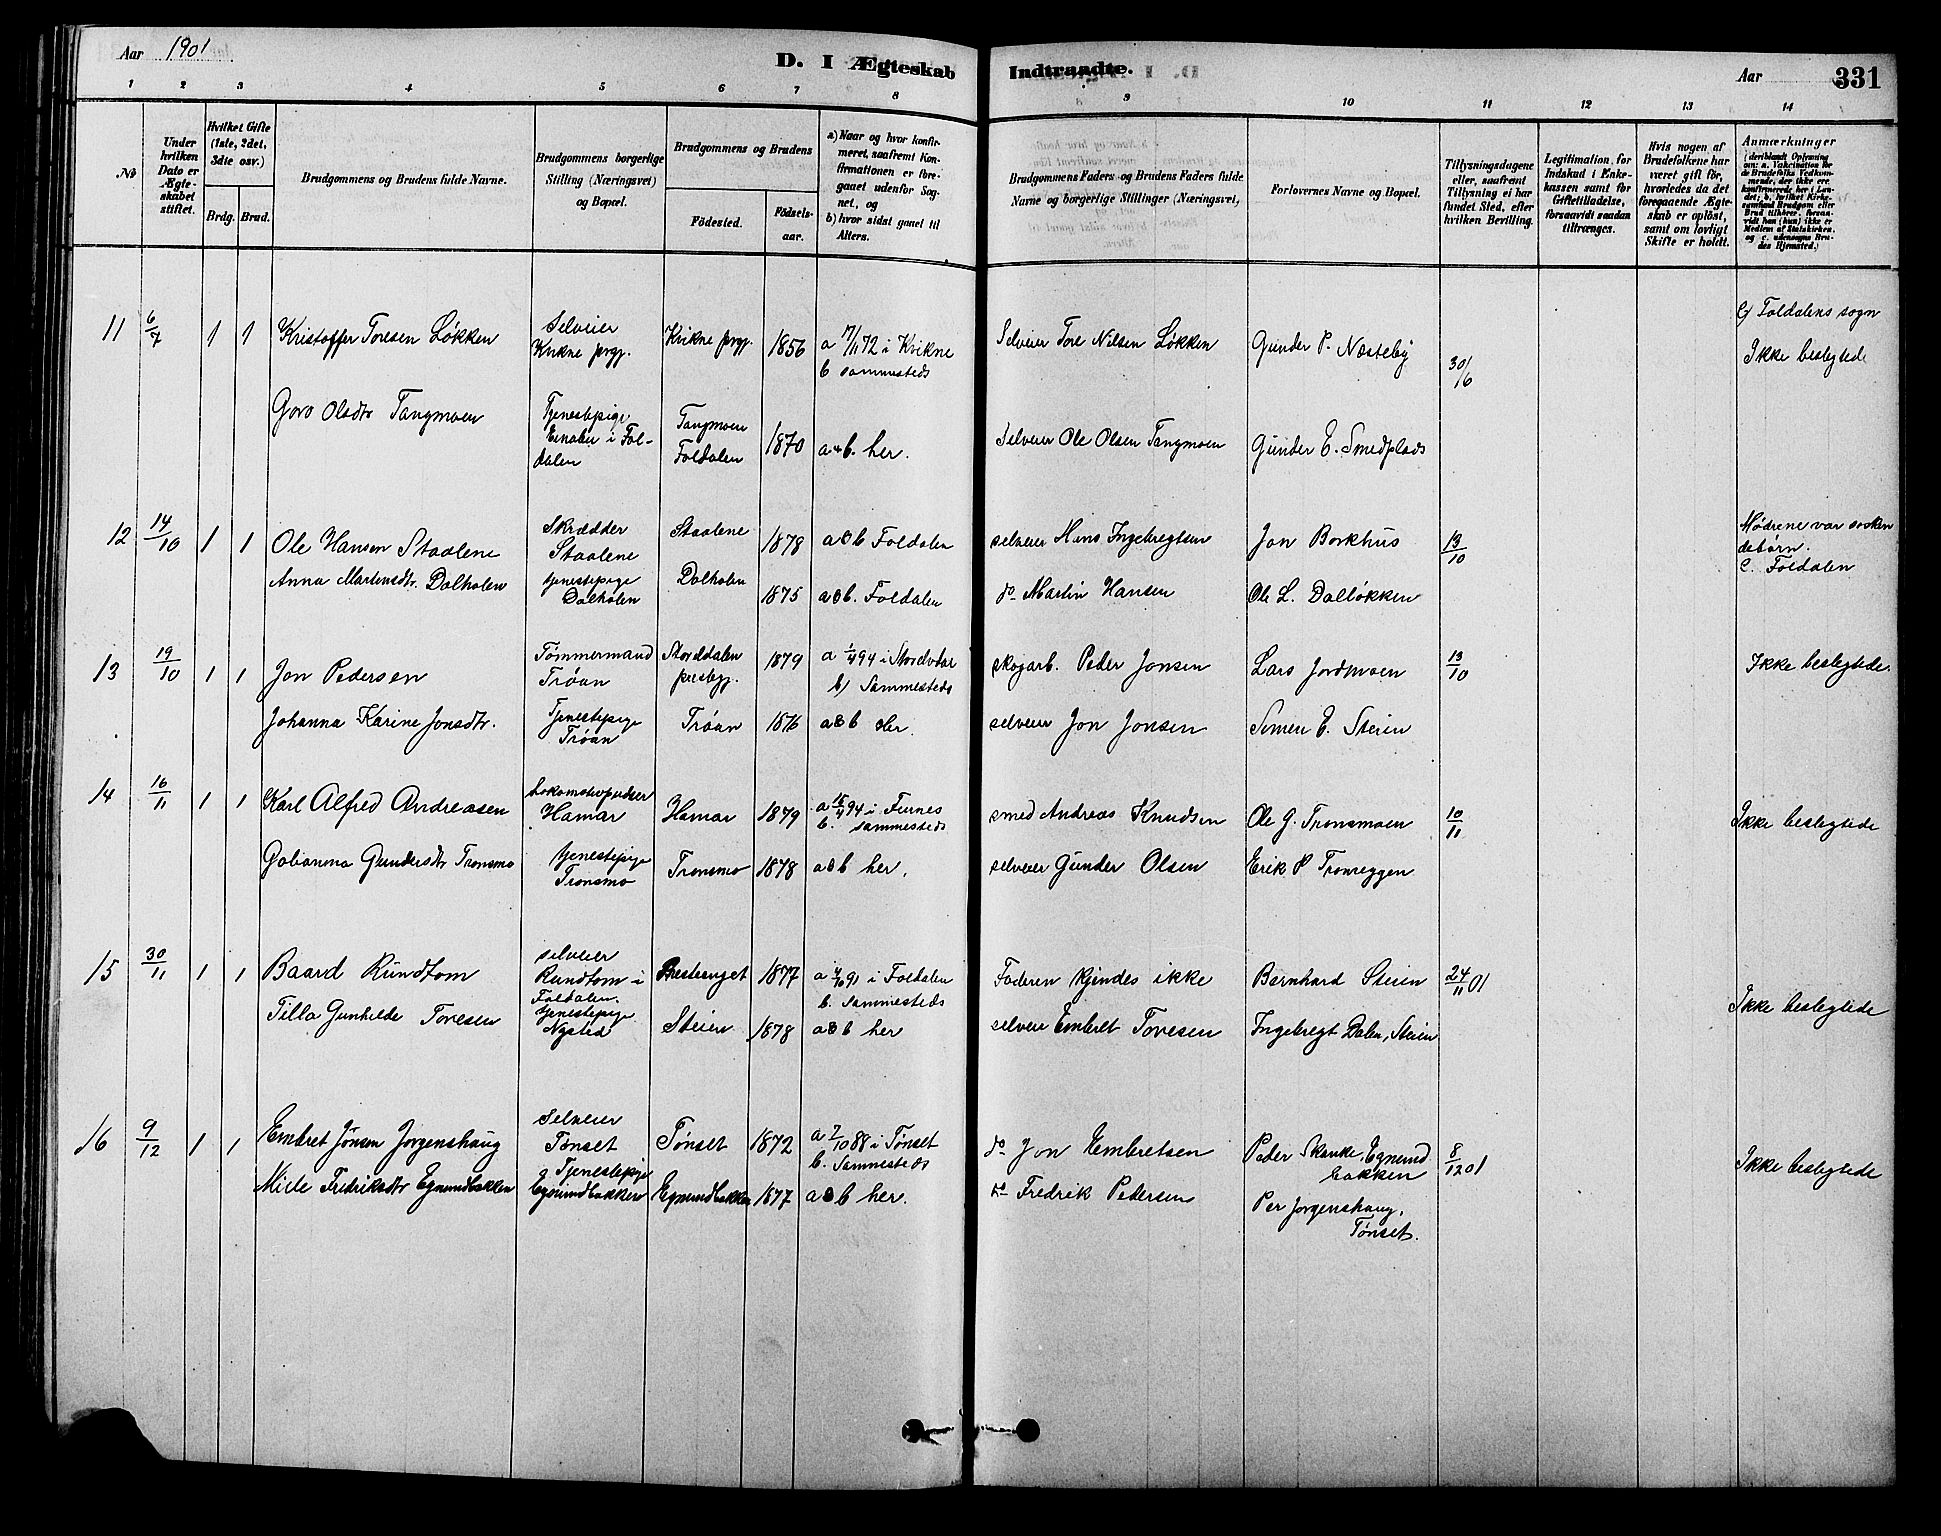 Aar 1901
D. I Ægteskab Indtraadte.
Aar
331
1 2 3 4 5 6 7 8 9 10 11 12 13 14
No
Under hvilken Dato er Ægteskabet stiftet.
Hvilket Gifte (1ste, 2det, 3die osv.)
Brdg. Brud.
Brudgommens og Brudens fulde Navne.
Brudgommens borgerlige Stilling (Næringsvei) og Bopæl.
Brudgommens og Brudens
Födested.
Födsels-aar.
a) Naar og hvor konfirmeret, saafremt Konfirmationen er foregaaet udenfor Sognet, og
b) hvor sidst ganet til Alters.
Brudgommens Faders og Brudens Faders fulde Navne og borgerlige Stillinger (Næringsvei)
Forlovernes Navne og Bopæl.
Tillysningsdagene eller, saafremt Tillysning ei har fundet Sted, efter hvilken Bevilling.
Legitimation, for Indskud i Enkekassen samt for Giftetilladelse, forsaavidt saadan tiltrænges.
Hvis nogen af Brudefolkene har været gift för, hvorledes da det foregaaende Ægteskab er oplöst, samt om lovligt Skifte er holdt.
Anmærkninger
11 6/7 1 1 Kristoffer Toresen Løkken
Selveier Kvikne prgj.
Kvikne prgj. 1856
a 17/11 72 i Kvikne
b sammesteds
Selveier Tore Nilsen Løkken
Gunder P. Næsteby
30/6
c) Foldalens sogn
Ikke beslegtede
Goro Olsdtr Tangmoen
Tjenestepige
Einabu i Fol-
dalen
Tangmoen
Foldalen
1870 a & b. her.
Selveier Ole Olsen Tangmoen
Gunder E. Smedplads
12 14/10 1 1 Ole Hansen Staalene
Skrædder
Staalene
Staalene 1878 a & b Foldalen
selveier Hans Ingebregtsen
Jon Borkhus
13/10
Mødrene var søsken
debørn.
c. Foldalen
Anna Martinsdtr. Dalholen
tjenestepige
Dalholen
Dalholen 1875 a & b. Foldalen
do Martin Hansen
Ole L. Dalløkken
13 19/10 1 1 Jon Pedersen
Tømmermand
Trøan
Storeldalen
prestgj.
1879
b) Sammesteds
skogarb. Peder Jonsen
Lars Jordmoen
13/10
Ikke beslegtede.
Johanna Karine Jonsdtr.
Tjenestepige
Trøan
Trøan 1876 a & b her.
selveier Jon Jonsen
Simen E. Steien
14 16/11 1 1 Karl Alfred Andreasen
Lokomotivpudser
Hamar
Hamar 1879
a 15/4 94 i Furnes
b. sammesteds
smed Andreas Knudsen
Ole G. Tronsmoen
10/11
Ikke beslegtede
Gundersdtr Tronsmo
tjenestepige
Tronsmo
Tronsmo 1878 a & b her.
selveier Gunder Olsen
Erik P Troneggen
15 30/11 1 1 Baard Rundtom
selveier
Rundtom i
Foldalen.
1877
91 i Foldalen
b. Sammesteds
Faderen kjendes ikke
Bernhard Steien
24/11 01
Ikke beslegtede
Tilla Gunhilde Toresen
tjenestepige
Nysted
Steien 1878 a & b her
selveier Embret Toresen
Ingebregt Dalen, Steien
16 9/12 1 1 Embret Jonsen Jorgenshaug
Selveier
Tønset
Tønset 1872
a 7/10 88 i Tønset
b. Sammesteds
do Jon Embretsen
Peder Skanke, Egnund
bakken
8/12 01
Ikke beslegtede
Fredriksdtr Egnundbakken
Tjenestepige
Egnundbakken
Egnundbakken 1877 a & b her.
do Fredrik Pedersen
Per Jorgenshaug,
Tønset.